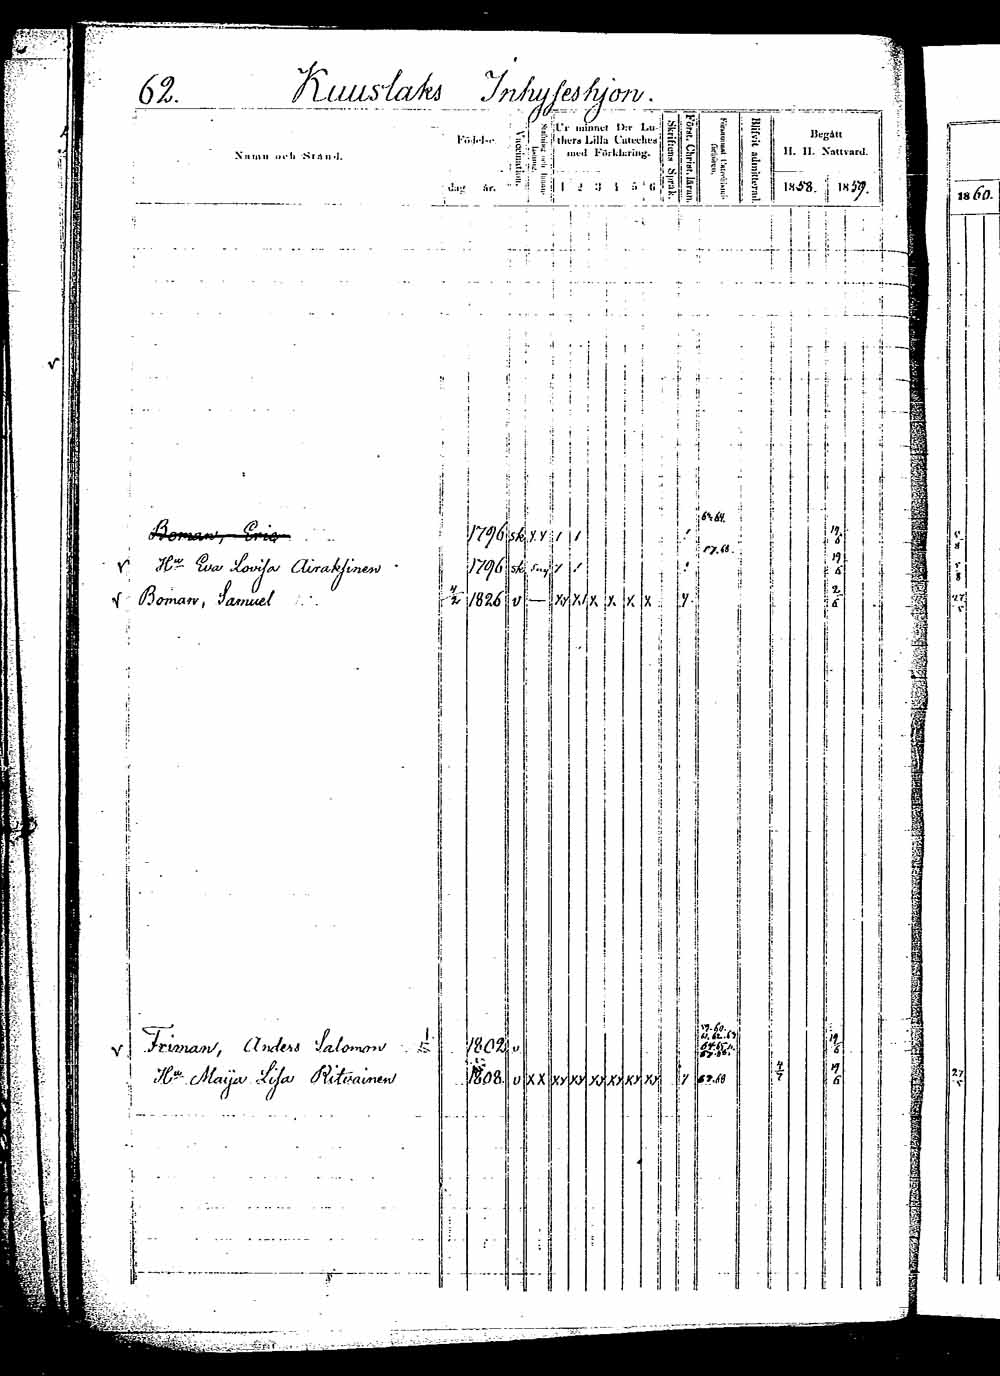 62. Kuuslaks Inhyseshjon.
Namn och Stånd.
Födelse
dag år.
Vaccination.
Ur minnet D:r Luthers Lilla Cateches med Förklaring.
1 2 3 4 5 6
Skriftens Språk.
Först. Christ. läran.
Blifvit admitterad.
Begått H. H. Nattvard.
1858. 1859.
1860.
Boman, Eric 1796 sk y y 1 1 19/6
v Hu Eva Lovisa Airaksinen 1796 sk 57.68. 19/6
v Boman, Samuel 4/2 1826 v — xy x1 x x x x y 2/6 27/5
v Friman, Anders Salomon 1802 v 19/6
Hu Maija Lisa Ritvainen 1808. v x x xy xy xy xy xy xy y 67.68 4/7 19/6 27/5